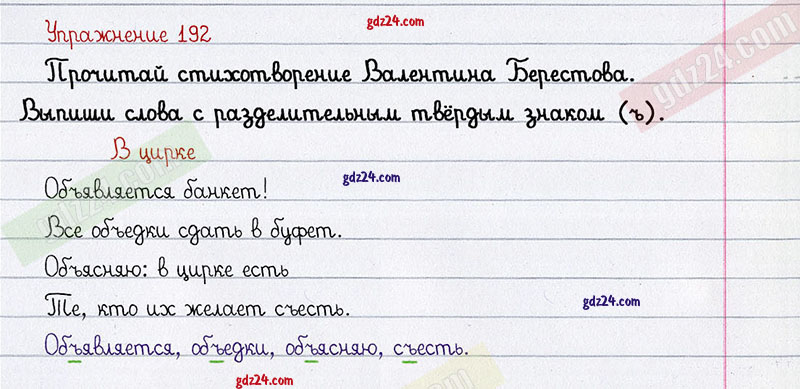 Упражнение 192
gdz24.com
Прочитай стихотворение Валентина Берестова.
gdz24.com
Выпиши слова с разделительным твёрдым знаком (ъ).
В цирке
gdz24.com
Объявляется банкет!
gdz24.com
Все объедки сдать в буфет.
Объясняю: в цирке есть
Те, кто их желает съесть.
gdz24.com
Объявляется, объедки, объясняю, съесть.
gdz24.com